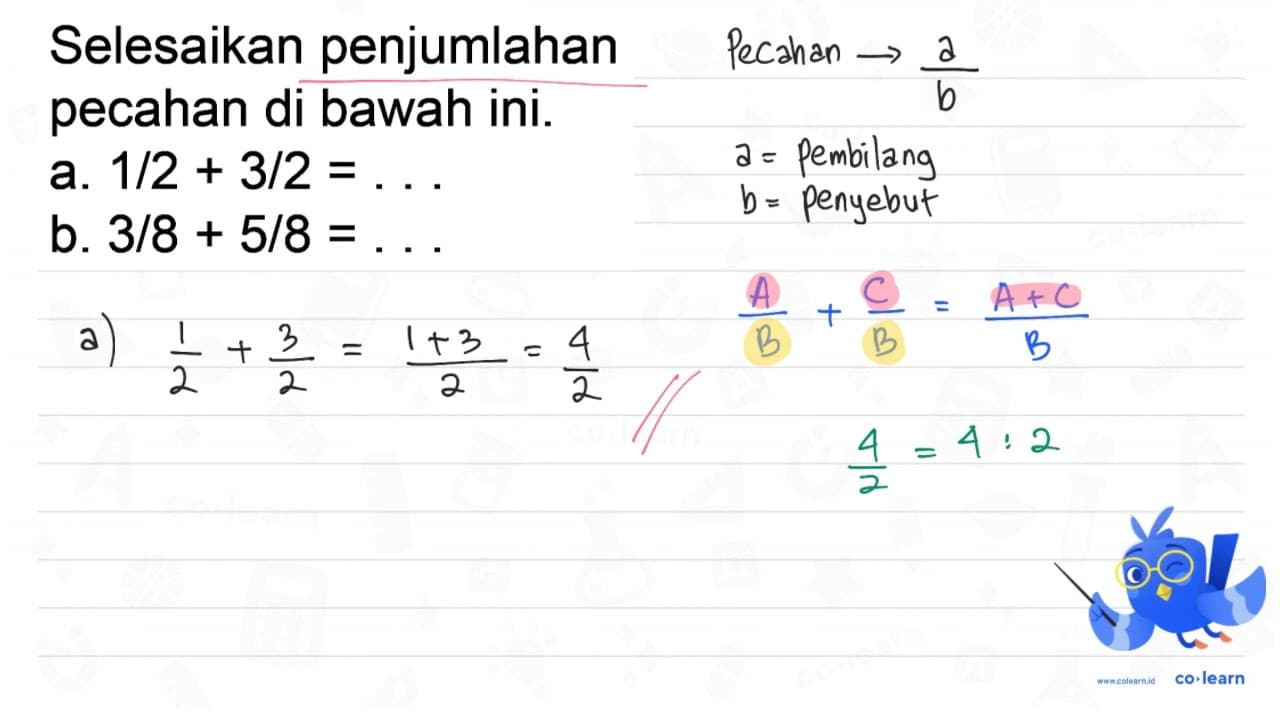 Selesaikan penjumlahan
pecahan di bawah ini.
a. 1/2 + 3/2 = . . .
b. 3/8 + 5/8 = . . .
Pecahan → a/b
a = pembilang
b = penyebut
A/B + C/B = A + C/B
a) 1/2 + 3/2 = 1+3/2 = 4/2
4/2 = 4 : 2
co-learn
www.colearn.id co·learn